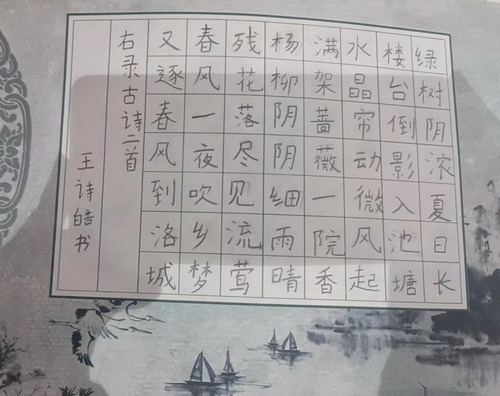 绿树阴浓夏日长
楼台倒影入池塘
水晶帘动微风起
满架蔷薇一院香
杨柳阴阴细雨晴
残花落尽见流莺
春风一夜吹乡梦
又逐春风到洛城
右录古诗二首
王诗皓书